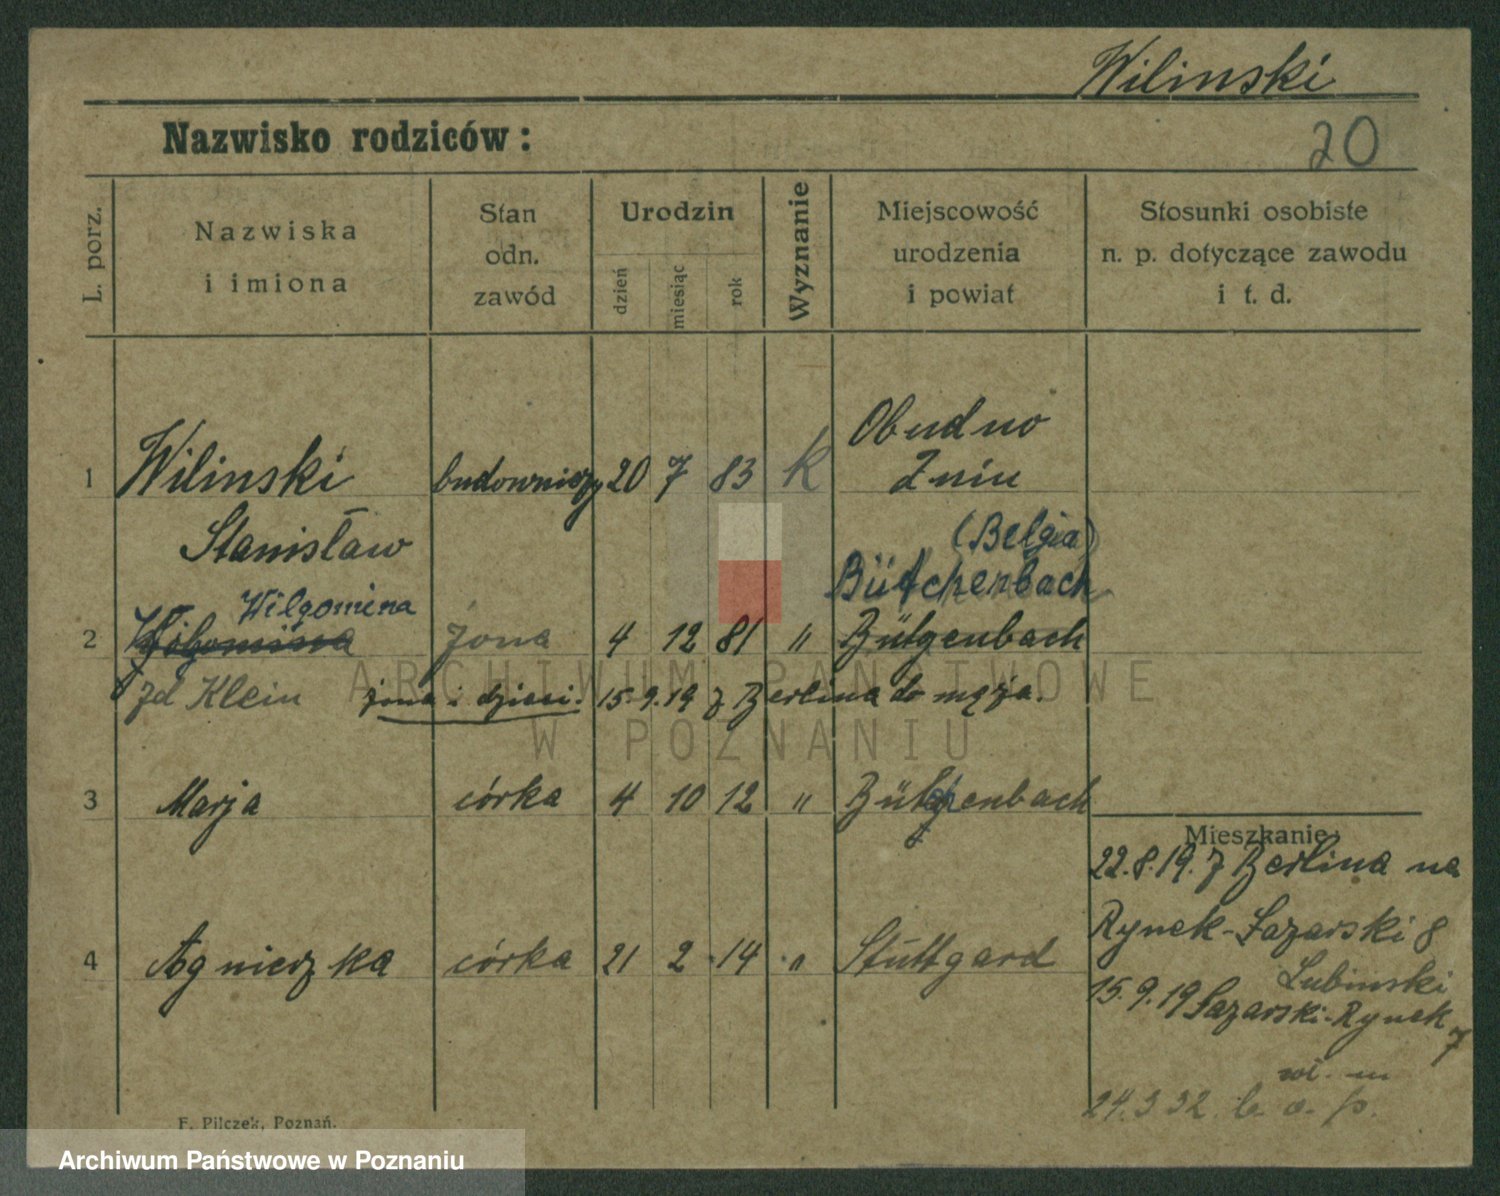 Wilinski
Nazwisko rodziców:
20
L. porz.
Nazwiska
i imiona
Stan
odn.
zawód
Urodzin
dzień
miesiąc
rok
Wyznanie
Miejscowość
urodzenia
i powiat
Stosunki osobiste
n. p. dotyczące zawodu
i t. d.
Obudno
1 Wilinski budowniczy 20 7 83 k Żnin
Stanisław
(Belgia)
Bütchenbach
Wilgomina
2 żona 4 12 81 " Bütgenbach
zd Klein żona i dzieci. 15.9.19 z Berlina do męża.
ARCHIWUM PAŃSTWOWE
W POZNANIU
3 Marja córka 4 10 12 " Bütgenbach
Mieszkanie:
22.8.19. z Berlina na
Rynek-Łazarski 8
4 Agnieszka córka 21 2 14 " Stuttgard
Lubinski
15.9.19 Łazarski-Rynek 7
24.3 32 b. o. p.
F. Pilczek, Poznań.
Archiwum Państwowe w Poznaniu